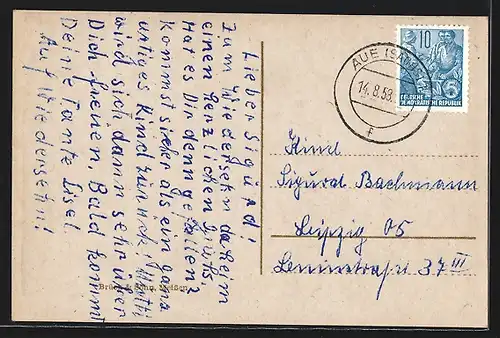 Lieber Sigurd!
Zum Wiedersehn daheim
einen herzlichen Gruß.
Hat es Dir denn gefallen?
Kommst sicher als ein ganz
artiges Kind zurück. Mutti
wird sich dann sehr über
Dich freuen. Bald kommt
Deine Tante Lisel.
Auf Wiedersehn!
Brück & Sohn, Meißen
10
DEUTSCHE
DEMOKRATISCHE REPUBLIK
AUE (SACHS)
14.8.58.
F
Kind
Sigurd Bachmann
Leipzig O5
Leninstraße 37 III